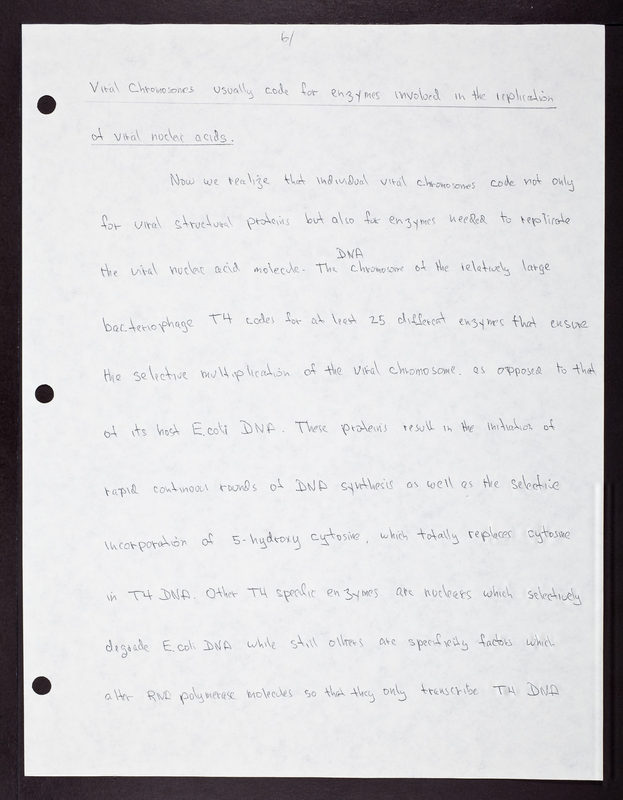 6/
Viral Chromosomes usually code for enzymes involved in the replication
of viral nucleic acids.
Now we realize that individual viral chromosomes code not only
for viral structural proteins but also for enzymes needed to replicate
DNA
the viral nucleic acid molecule. The chromosome of the relatively large
bacteriophage T4 codes for at least 25 different enzymes that ensure
the selective multiplication of the viral chromosome. as opposed to that
of its host E.coli DNA. These proteins result in the initiation of
rapid continuous rounds of DNA synthesis as well as the selective
incorporation of 5-hydroxy cytosine, which totally replaces cytosine
in T4 DNA. Other T4 specific enzymes are nucleases which selectively
degrade E.coli DNA while still others are specificity factors which
alter RNA polymerase molecules so that they only transcribe T4 DNA